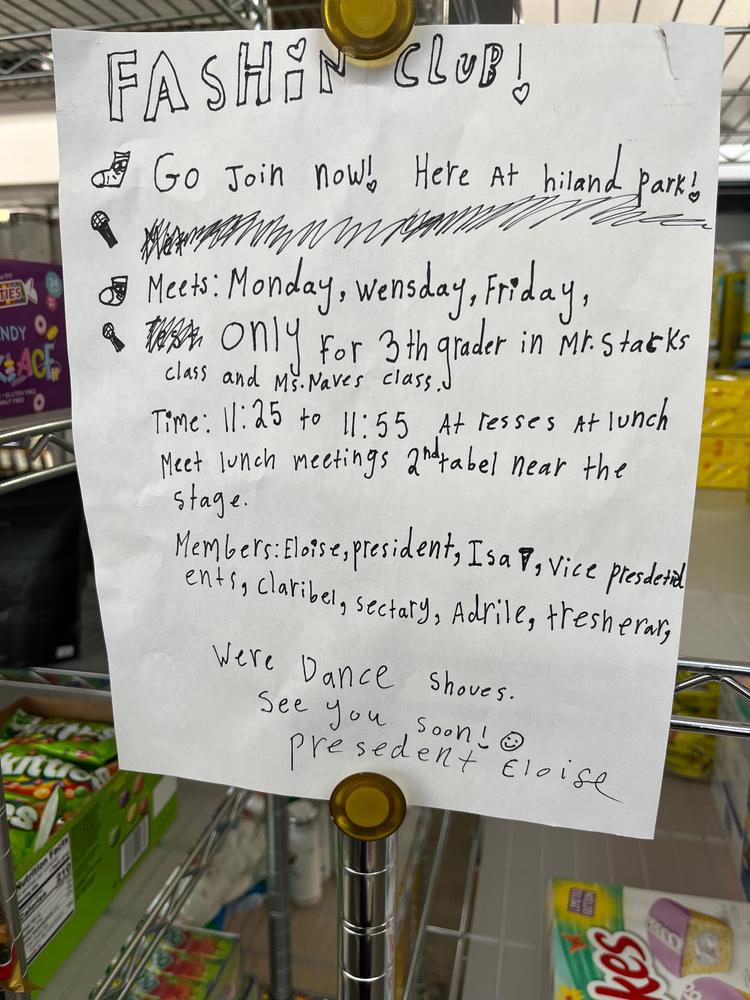 FASHiN CLUB!
Go Join now! Here At hiland park!
Meets: Monday, Wensday, Friday,
only for 3th grader in Mr. Starks
class and Ms. Naves class.
Time: 11:25 to 11:55 At resses At lunch
Meet lunch meetings 2nd tabel near the
stage.
Members: Eloise, president, Isa, Vice presdetid
ents, claribel, sectary, Adrile, tresherar,
Were Dance shoues.
See you soon!
presedent Eloise
Nutrition Facts
Calories
210
kes